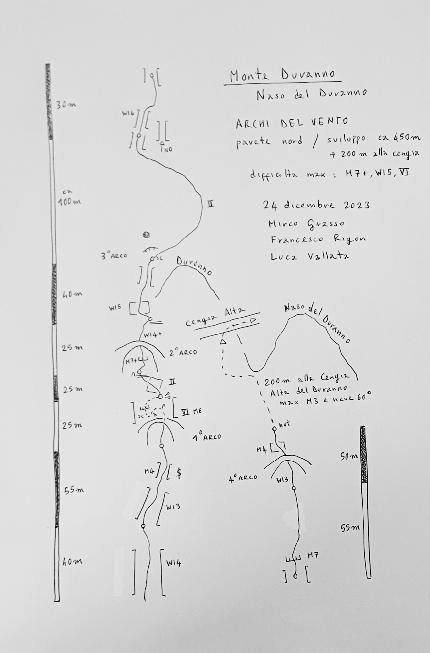 Monte Duranno
Naso del Duranno
ARCHI DEL VENTO
parete nord / sviluppo ca 450m
+ 200m alla cengia
difficoltà max: M7+, WI5, VI
24 dicembre 2023
Mirco Grasso
Francesco Rigon
Luca Vallata
30m
WI4
ca
100m
II
3° ARCO
SC
Duranno
40m
WI5
Cengia Alta
Naso del Duranno
WI4+
25m
2° ARCO
M7+
II
25m
200m alla Cengia
Alta del Duranno
max M3 e neve 60°
VI M6
25m
1° ARCO
M4
M4
50m
4° ARCO
WI3
55m
WI3
55m
M7
40m
WI4